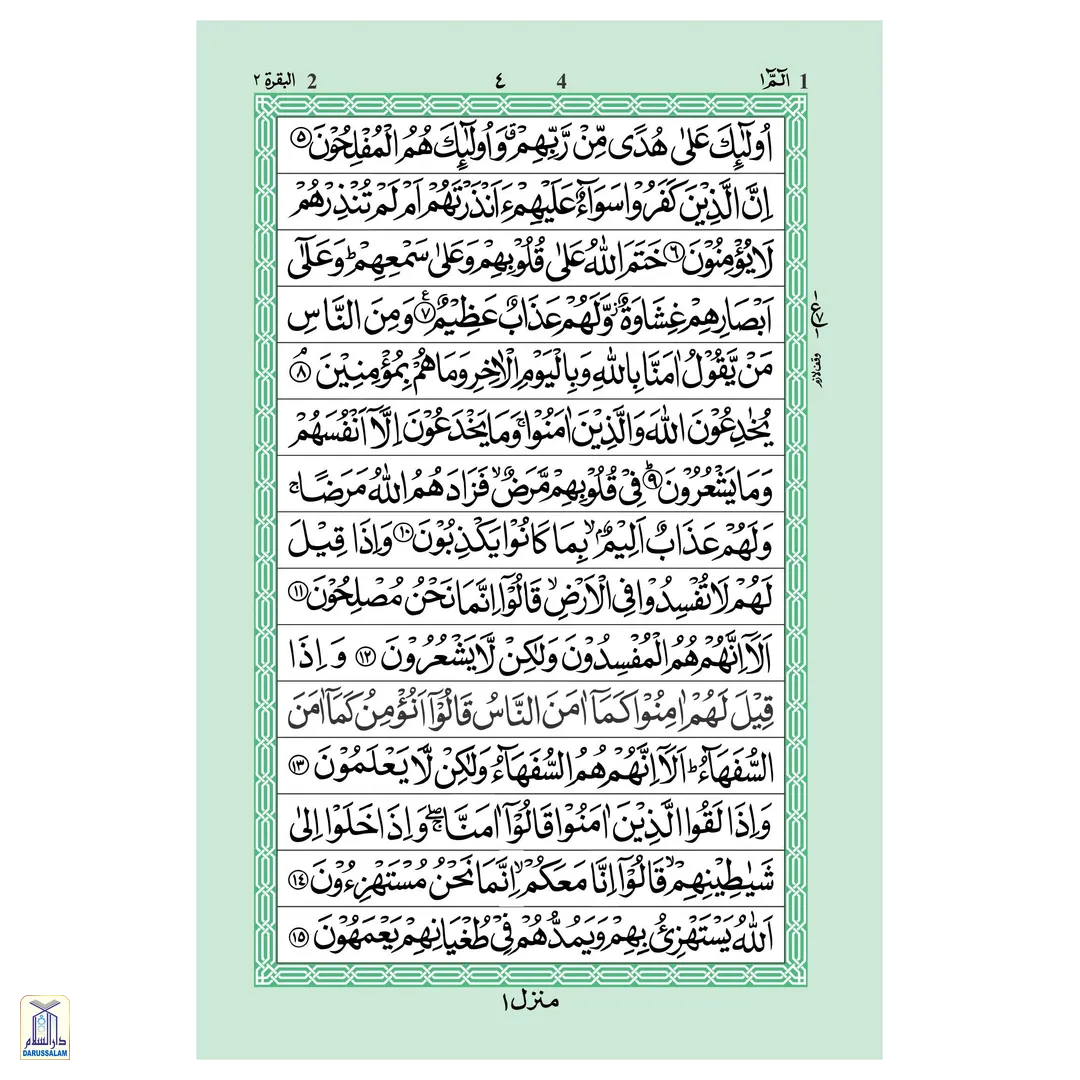 1 الٓمّٓ ١ 4 ٤ 2 البقرة ٢
اُولٰٓئِكَ عَلٰى هُدًى مِّنْ رَّبِّهِمْ ۗ وَاُولٰٓئِكَ هُمُ الْمُفْلِحُوْنَ ۝٥
اِنَّ الَّذِيْنَ كَفَرُوْا سَوَآءٌ عَلَيْهِمْ ءَاَنْذَرْتَهُمْ اَمْ لَمْ تُنْذِرْهُمْ
لَا يُؤْمِنُوْنَ ۝٦ خَتَمَ اللّٰهُ عَلٰى قُلُوْبِهِمْ وَعَلٰى سَمْعِهِمْ ؕ وَعَلٰٓى
اَبْصَارِهِمْ غِشَاوَةٌ ۡ وَّلَهُمْ عَذَابٌ عَظِيْمٌ ۝٧ ع وَمِنَ النَّاسِ
مَنْ يَّقُوْلُ اٰمَنَّا بِاللّٰهِ وَبِالْيَوْمِ الْاٰخِرِ وَمَا هُمْ بِمُؤْمِنِيْنَ ۝٨ ۘ
وقف لازم
يُخٰدِعُوْنَ اللّٰهَ وَالَّذِيْنَ اٰمَنُوْا ۚ وَمَا يَخْدَعُوْنَ اِلَّآ اَنْفُسَهُمْ
وَمَا يَشْعُرُوْنَ ۝٩ ؕ فِيْ قُلُوْبِهِمْ مَّرَضٌ ۙ فَزَادَهُمُ اللّٰهُ مَرَضًا ۚ
وَلَهُمْ عَذَابٌ اَلِيْمٌ ۢ ۙ بِمَا كَانُوْا يَكْذِبُوْنَ ۝١٠ وَاِذَا قِيْلَ
لَهُمْ لَا تُفْسِدُوْا فِى الْاَرْضِ ۙ قَالُوْٓا اِنَّمَا نَحْنُ مُصْلِحُوْنَ ۝١١
اَلَآ اِنَّهُمْ هُمُ الْمُفْسِدُوْنَ وَلٰكِنْ لَّا يَشْعُرُوْنَ ۝١٢ وَاِذَا
قِيْلَ لَهُمْ اٰمِنُوْا كَمَآ اٰمَنَ النَّاسُ قَالُوْٓا اَنُؤْمِنُ كَمَآ اٰمَنَ
السُّفَهَآءُ ؕ اَلَآ اِنَّهُمْ هُمُ السُّفَهَآءُ وَلٰكِنْ لَّا يَعْلَمُوْنَ ۝١٣
وَاِذَا لَقُوا الَّذِيْنَ اٰمَنُوْا قَالُوْٓا اٰمَنَّا ۖۚ وَاِذَا خَلَوْا اِلٰى
شَيٰطِيْنِهِمْ ۙ قَالُوْٓا اِنَّا مَعَكُمْ ۙ اِنَّمَا نَحْنُ مُسْتَهْزِءُوْنَ ۝١٤
اَللّٰهُ يَسْتَهْزِئُ بِهِمْ وَيَمُدُّهُمْ فِيْ طُغْيَانِهِمْ يَعْمَهُوْنَ ۝١٥
منزل ١
دار السلام
DARUSSALAM